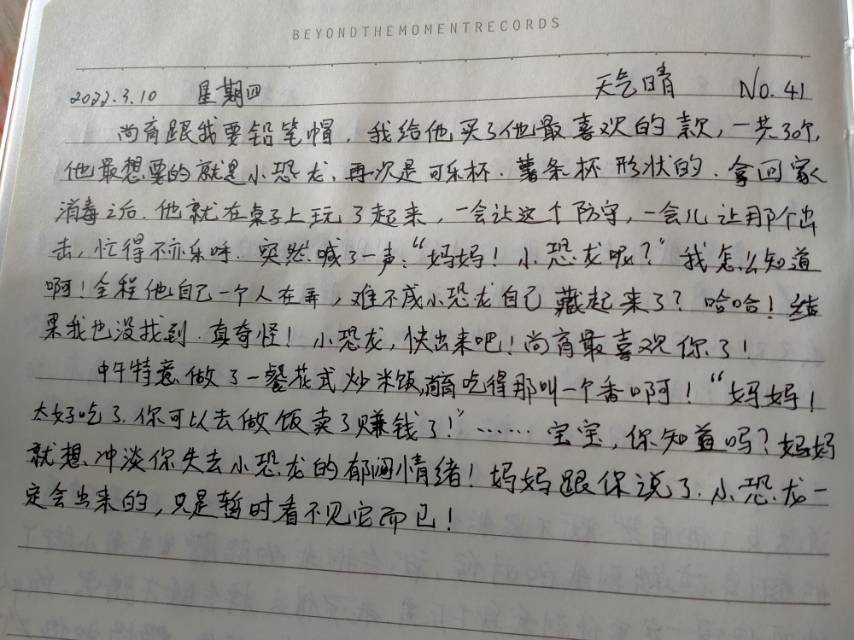 BEYONDTHEMOMENTRECORDS
2022.3.10 星期四 天气晴 No. 41
尚育跟我要铅笔帽，我给他买了他最喜欢的款，一共30个，
他最想要的就是小恐龙，再次是可乐杯．薯条杯形状的．拿回家
消毒之后．他就在桌子上玩了起来，一会让这个防守，一会儿让那个出
击，忙得不亦乐呼．突然喊了一声："妈妈！小恐龙呢？"我怎么知道
啊！全程他自己一个人在弄，难不成小恐龙自己藏起来了？哈哈！结
果我也没找到．真奇怪！小恐龙，快出来吧！尚育最喜欢你了！
中午特意做了一餐花式炒米饭，尚育吃得那叫一个香啊！"妈妈！
太好吃了．你可以去做饭卖了赚钱了！"……宝宝，你知道吗？妈妈
就想冲淡你失去小恐龙的郁闷情绪！妈妈跟你说了．小恐龙一
定会出来的，只是暂时看不见它而已！